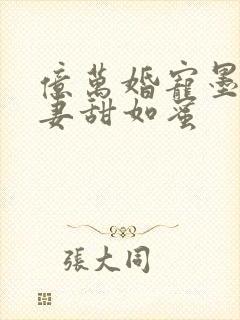 億萬婚寵墨
妻甜如蜜
張大同